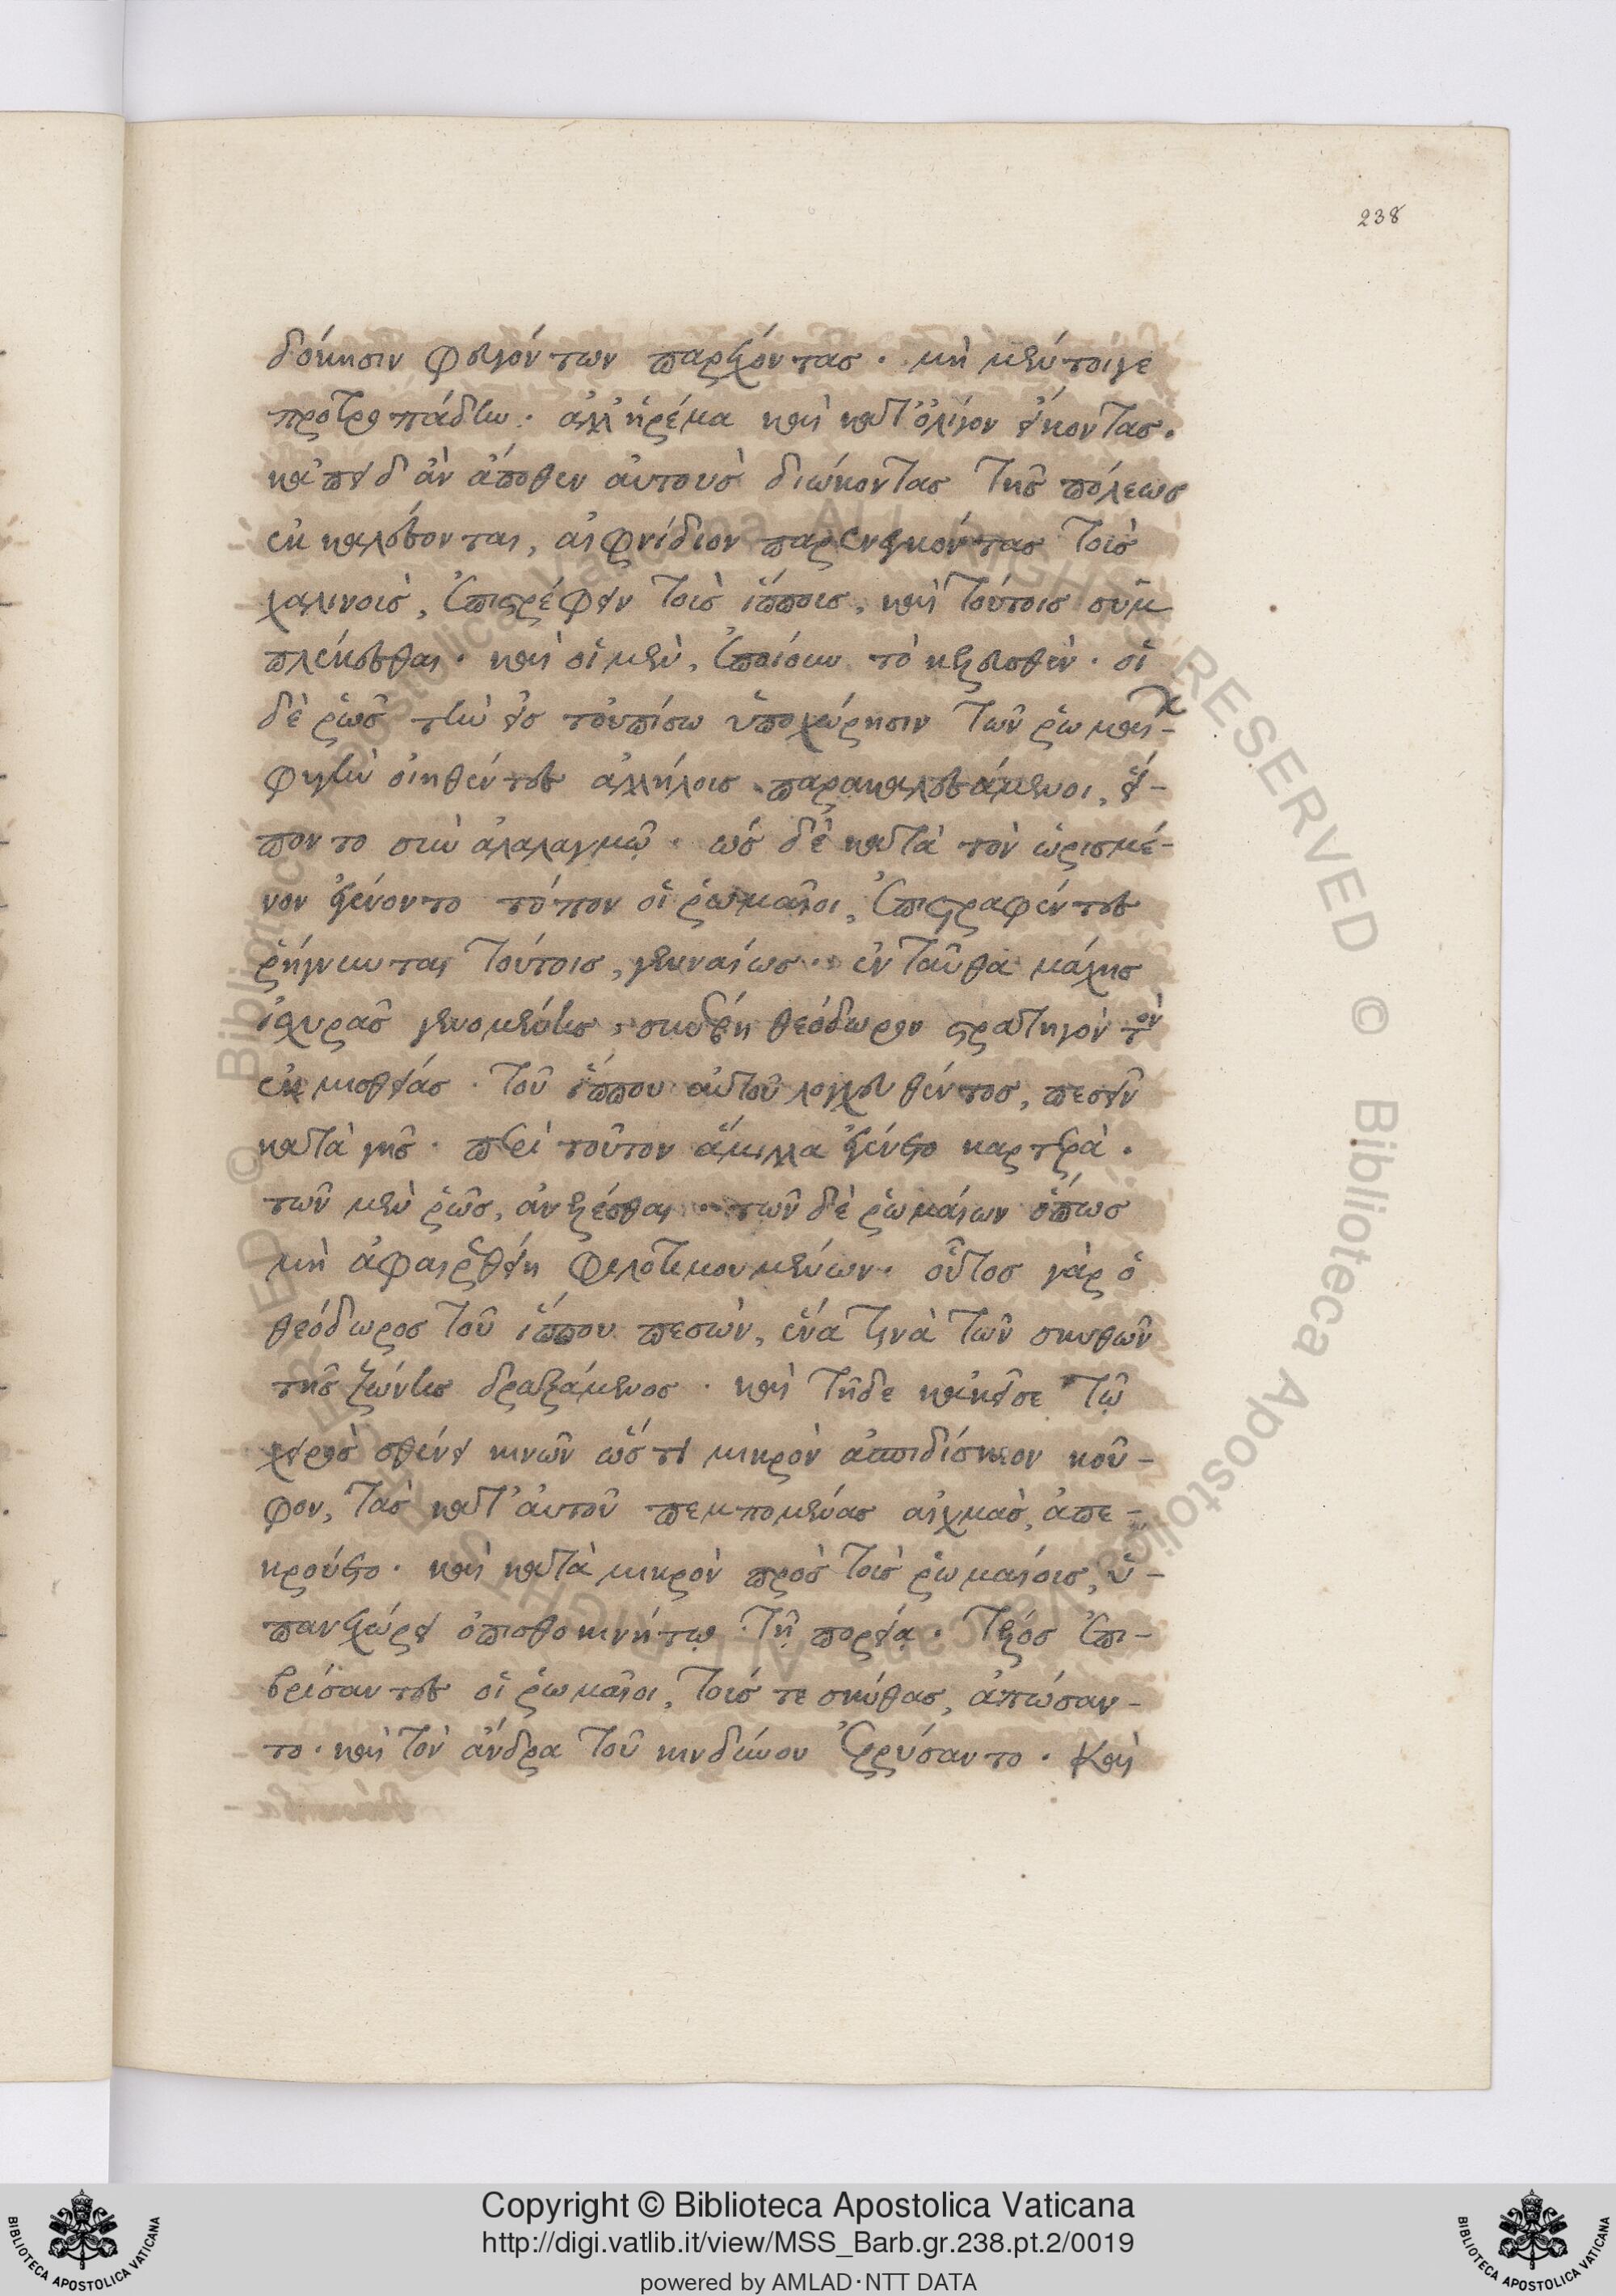 238
δόκησιν φευγόντων παρεχόντας· μὴ μέντοιγε
προτροπάδην· ἀλλ' ἠρέμα καὶ κατ' ὀλίγον εἴκοντας.
κἀπειδὰν ἄποθεν αὐτοὺς διώκοντας τῆς πόλεως
ἐκκαλέσονται, αἰφνίδιον παρενεγκόντας τοὺς
χαλινοὺς, ἐπιστρέφειν τοὺς ἵππους, καὶ τούτοις συμ
πλέκεσθαι· καὶ οἱ μὲν, ἐποίουν τὸ κελευσθέν· οἱ
δὲ ῥῶς τὴν εἰς τοὐπίσω ὑποχώρησιν τῶν ῥωμαί-
φυγὴν οἰηθέντες ἀλλήλοις παρακελευσάμενοι, εἵ-
ποντο σὺν ἀλαλαγμῷ· ὡς δὲ κατὰ τὸν ὡρισμέ-
νον ἐγένοντο τόπον οἱ ῥωμαῖοι, ἐπιστραφέντες
ῥήγνυνται τούτοις, γενναίως· ἐνταῦθα μάχης
ἰσχυρᾶς γενομένης, συνέβη θεόδωρον στρατηγὸν τὸν
ἐκ μισθείας· τοῦ ἵππου αὐτοῦ λογχευθέντος, πεσεῖν
κατὰ γῆς· περὶ τοῦτον ἅμιλλα ἐγένετο καρτερὰ.
τῶν μὲν ῥῶς, ἀνελέσθαι· τῶν δὲ ῥωμαίων ὅπως
μὴ ἀφαιρεθείη φιλοτιμουμένων· οὗτος γὰρ ὁ
θεόδωρος τοῦ ἵππου πεσὼν, ἕνα τινὰ τῶν σκυθῶν
τῆς ζώνης δραξάμενος· καὶ τῇδε κἀκεῖσε τῷ
χειρὸς σθένει κινῶν ὥς τι μικρὸν ἀσπιδίσκιον κοῦ-
φον, τὰς κατ' αὐτοῦ πεμπομένας αἰχμὰς, ἀπε-
κρούετο· καὶ κατὰ μικρὸν πρὸς τοὺς ῥωμαίους, ὑ-
πανεχώρει ὀπισθοκινήτῳ τῇ πορείᾳ· τέλος ἐπι-
βρίσαντες οἱ ῥωμαῖοι, τούς τε σκύθας, ἀπώσαν-
το· καὶ τὸν ἄνδρα τοῦ κινδύνου ἐρρύσαντο. Καὶ
Copyright © Biblioteca Apostolica Vaticana
http://digi.vatlib.it/view/MSS_Barb.gr.238.pt.2/0019
powered by AMLAD·NTT DATA
BIBLIOTECA APOSTOLICA VATICANA
BIBLIOTECA APOSTOLICA VATICANA